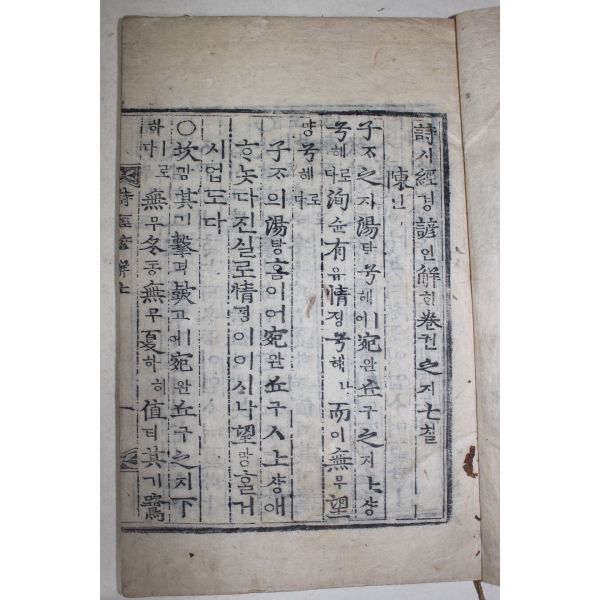 詩시經경諺언解ᄒᆡ卷권之지七칠
陳딘
子ᄌᆞ之지湯탕兮혜ㅣ여宛완丘구之지上샹
兮혜로다洵슌有유情졍兮혜나而이無무望
망兮혜로다
子ᄌᆞ의湯탕홈이여宛완丘구人上샹애
ᄒᆞ놋다진실로情졍이이시나望망홀거
시업도다
○坎감其기擊격鼓고여宛완丘구之지下
하ㅣ로다無무冬동無무夏하히値티其기鷺
詩經諺解七 一